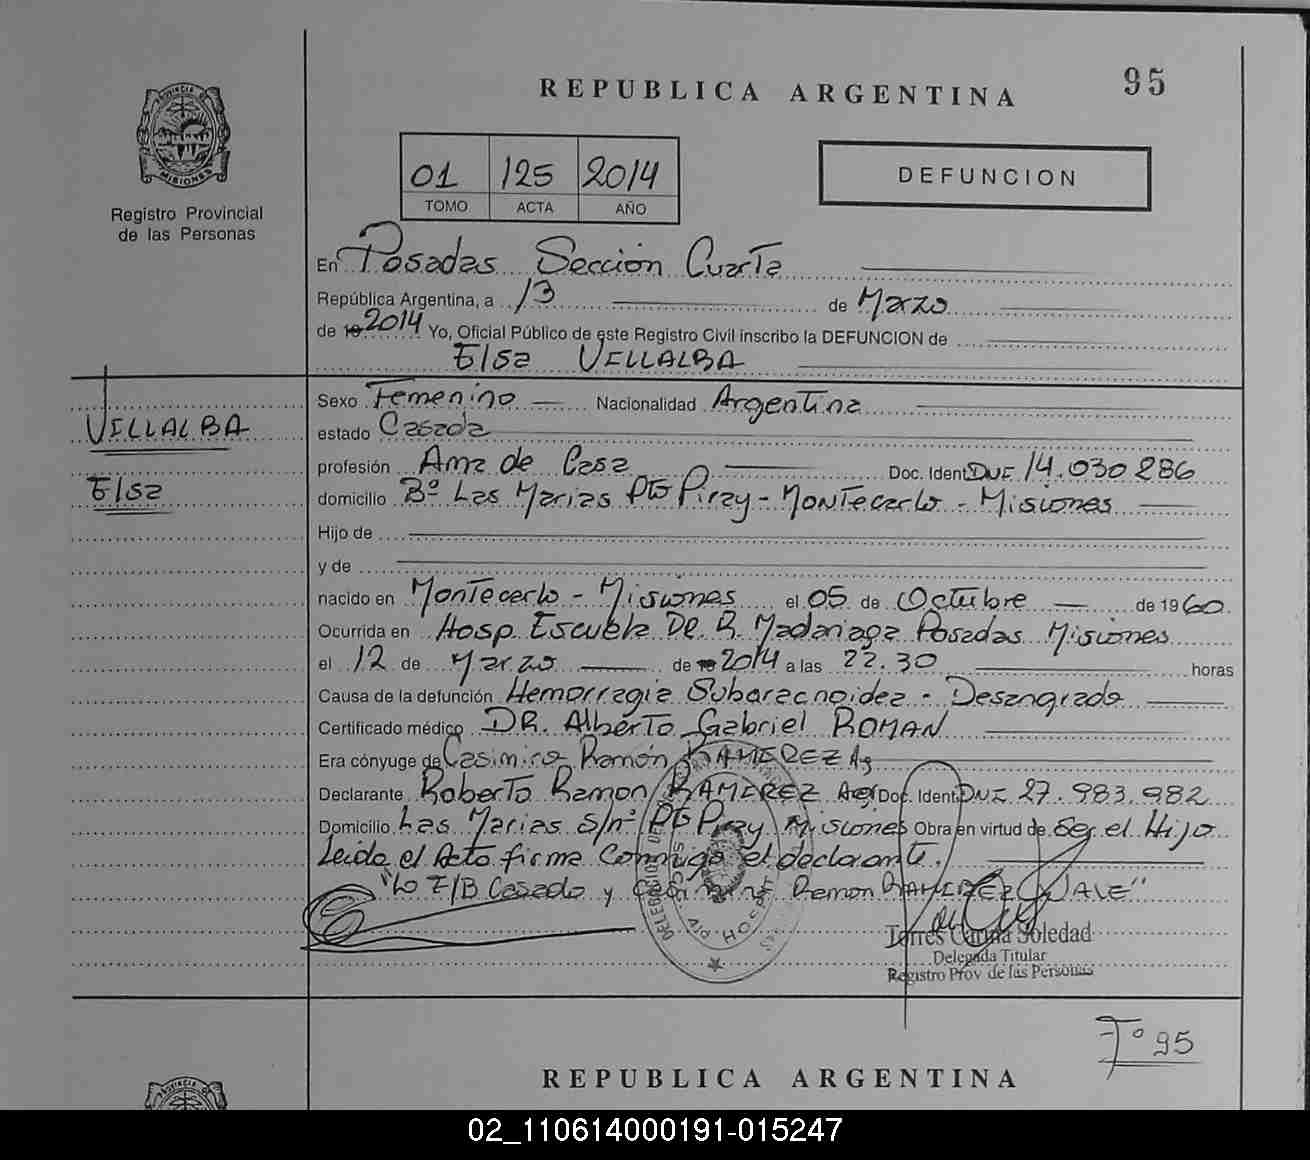 95
REPUBLICA ARGENTINA
PROVINCIA DE
MISIONES
Registro Provincial
de las Personas
01 125 2014
TOMO ACTA AÑO
DEFUNCION
En Posadas Sección Cuarta
República Argentina, a 13 de Marzo
de 19 2014 Yo, Oficial Público de este Registro Civil inscribo la DEFUNCION de
Elsa VILLALBA
VILLALBA
Elsa
Sexo Femenino Nacionalidad Argentina
estado Casada
profesión Ama de Casa Doc. Ident. DNI 14.030.286
domicilio Bº Las Marias Pto Piray - Montecarlo - Misiones
Hijo de
y de
nacido en Montecarlo - Misiones el 05 de Octubre de 1960
Ocurrida en Hosp. Escuela DR. R. Madariaga Posadas Misiones
el 12 de Marzo de 19 2014 a las 22.30 horas
Causa de la defunción Hemorragia Subaracnoidea - Desangrado
Certificado médico DR. Alberto Gabriel ROMAN
Era cónyuge de Casimiro Ramón RAMIREZ Ag
Declarante Roberto Ramon RAMIREZ Doc. Ident. DNI 27.983.982
Domicilio Las Marias S/nº Pto Piray Misiones Obra en virtud de Ser el Hijo
Leida el Acta firma Conmigo el declarante.
"Lo E/B Casado y Casimiro Ramon RAMIREZ VALE"
Torres Carina Soledad
Delegada Titular
Registro Prov de las Personas
Fº 95
REPUBLICA ARGENTINA
02_110614000191-015247